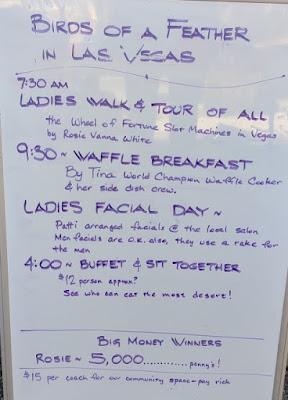 BIRDS OF A FEATHER
IN LAS VEGAS
7:30 AM
LADIES WALK & TOUR OF ALL
the Wheel of Fortune Slot Machines in Vegas
by Rosie Vanna White
9:30 ~ WAFFLE BREAKFAST
By Tina World Champion Waffle Cooker
& her side dish crew.
LADIES FACIAL DAY ~
Patti arranged facials @ the local salon
Men facials are O.K. also, they use a rake for
the men
4:00 ~ BUFFET & SIT TOGETHER
$12 person approx?
See who can eat the most desert!
BIG MONEY WINNERS
ROSIE ~ 5,000.............. penny's!
$15 per coach for our community space - pay rick